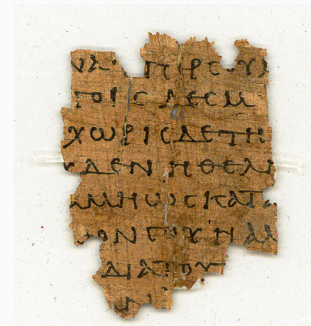 ΝΑ ΠΕΡϹΟΥ
ΤΟΙϹΔΕϹΜ
ΧΩΡΙϹΔΕΤΗ
ΥΔΕΝΗΘΕΛΗ
ΜΗΩϹΚΑΤΑ
ΟΝϹΟΥΗΑΛ
ΔΙΑΤΟΥΤ